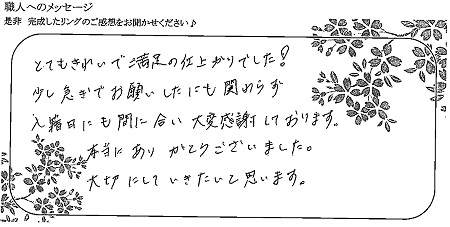 職人へのメッセージ
是非 完成したリングのご感想をお聞かせください♪
とてもきれいで満足の仕上がりでした!
少し急ぎでお願いしたにも関わらず
入籍日にも間に合い大変感謝しております。
本当にありがとうございました。
大切にしていきたいと思います。